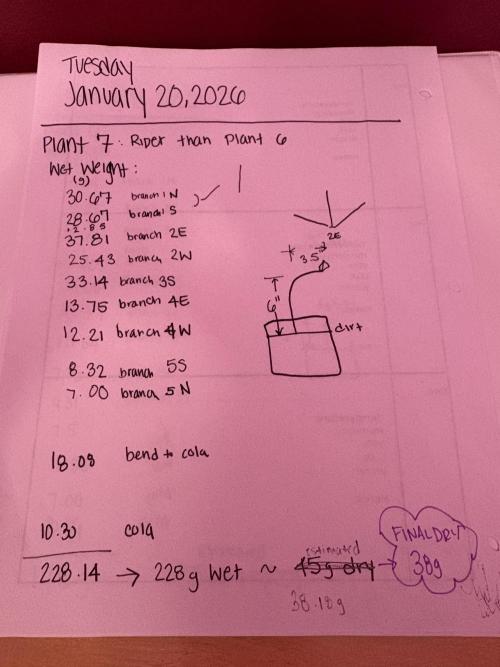 Tuesday
January 20, 2026
Plant 7: Riper than Plant 6
Wet Weight:
(g)
30.67 branch 1N
28.67 branch 1S
12.85
37.81 branch 2E
25.43 branch 2W
33.14 branch 3S
13.75 branch 4E
12.21 branch 4W
8.32 branch 5S
7.00 branch 5N
2E
35
6"
dirt
18.08 bend to cola
10.30 cola
228.14 → 228g wet ~ 45g dry →
estimated
38.18g
FINAL DRY
38g